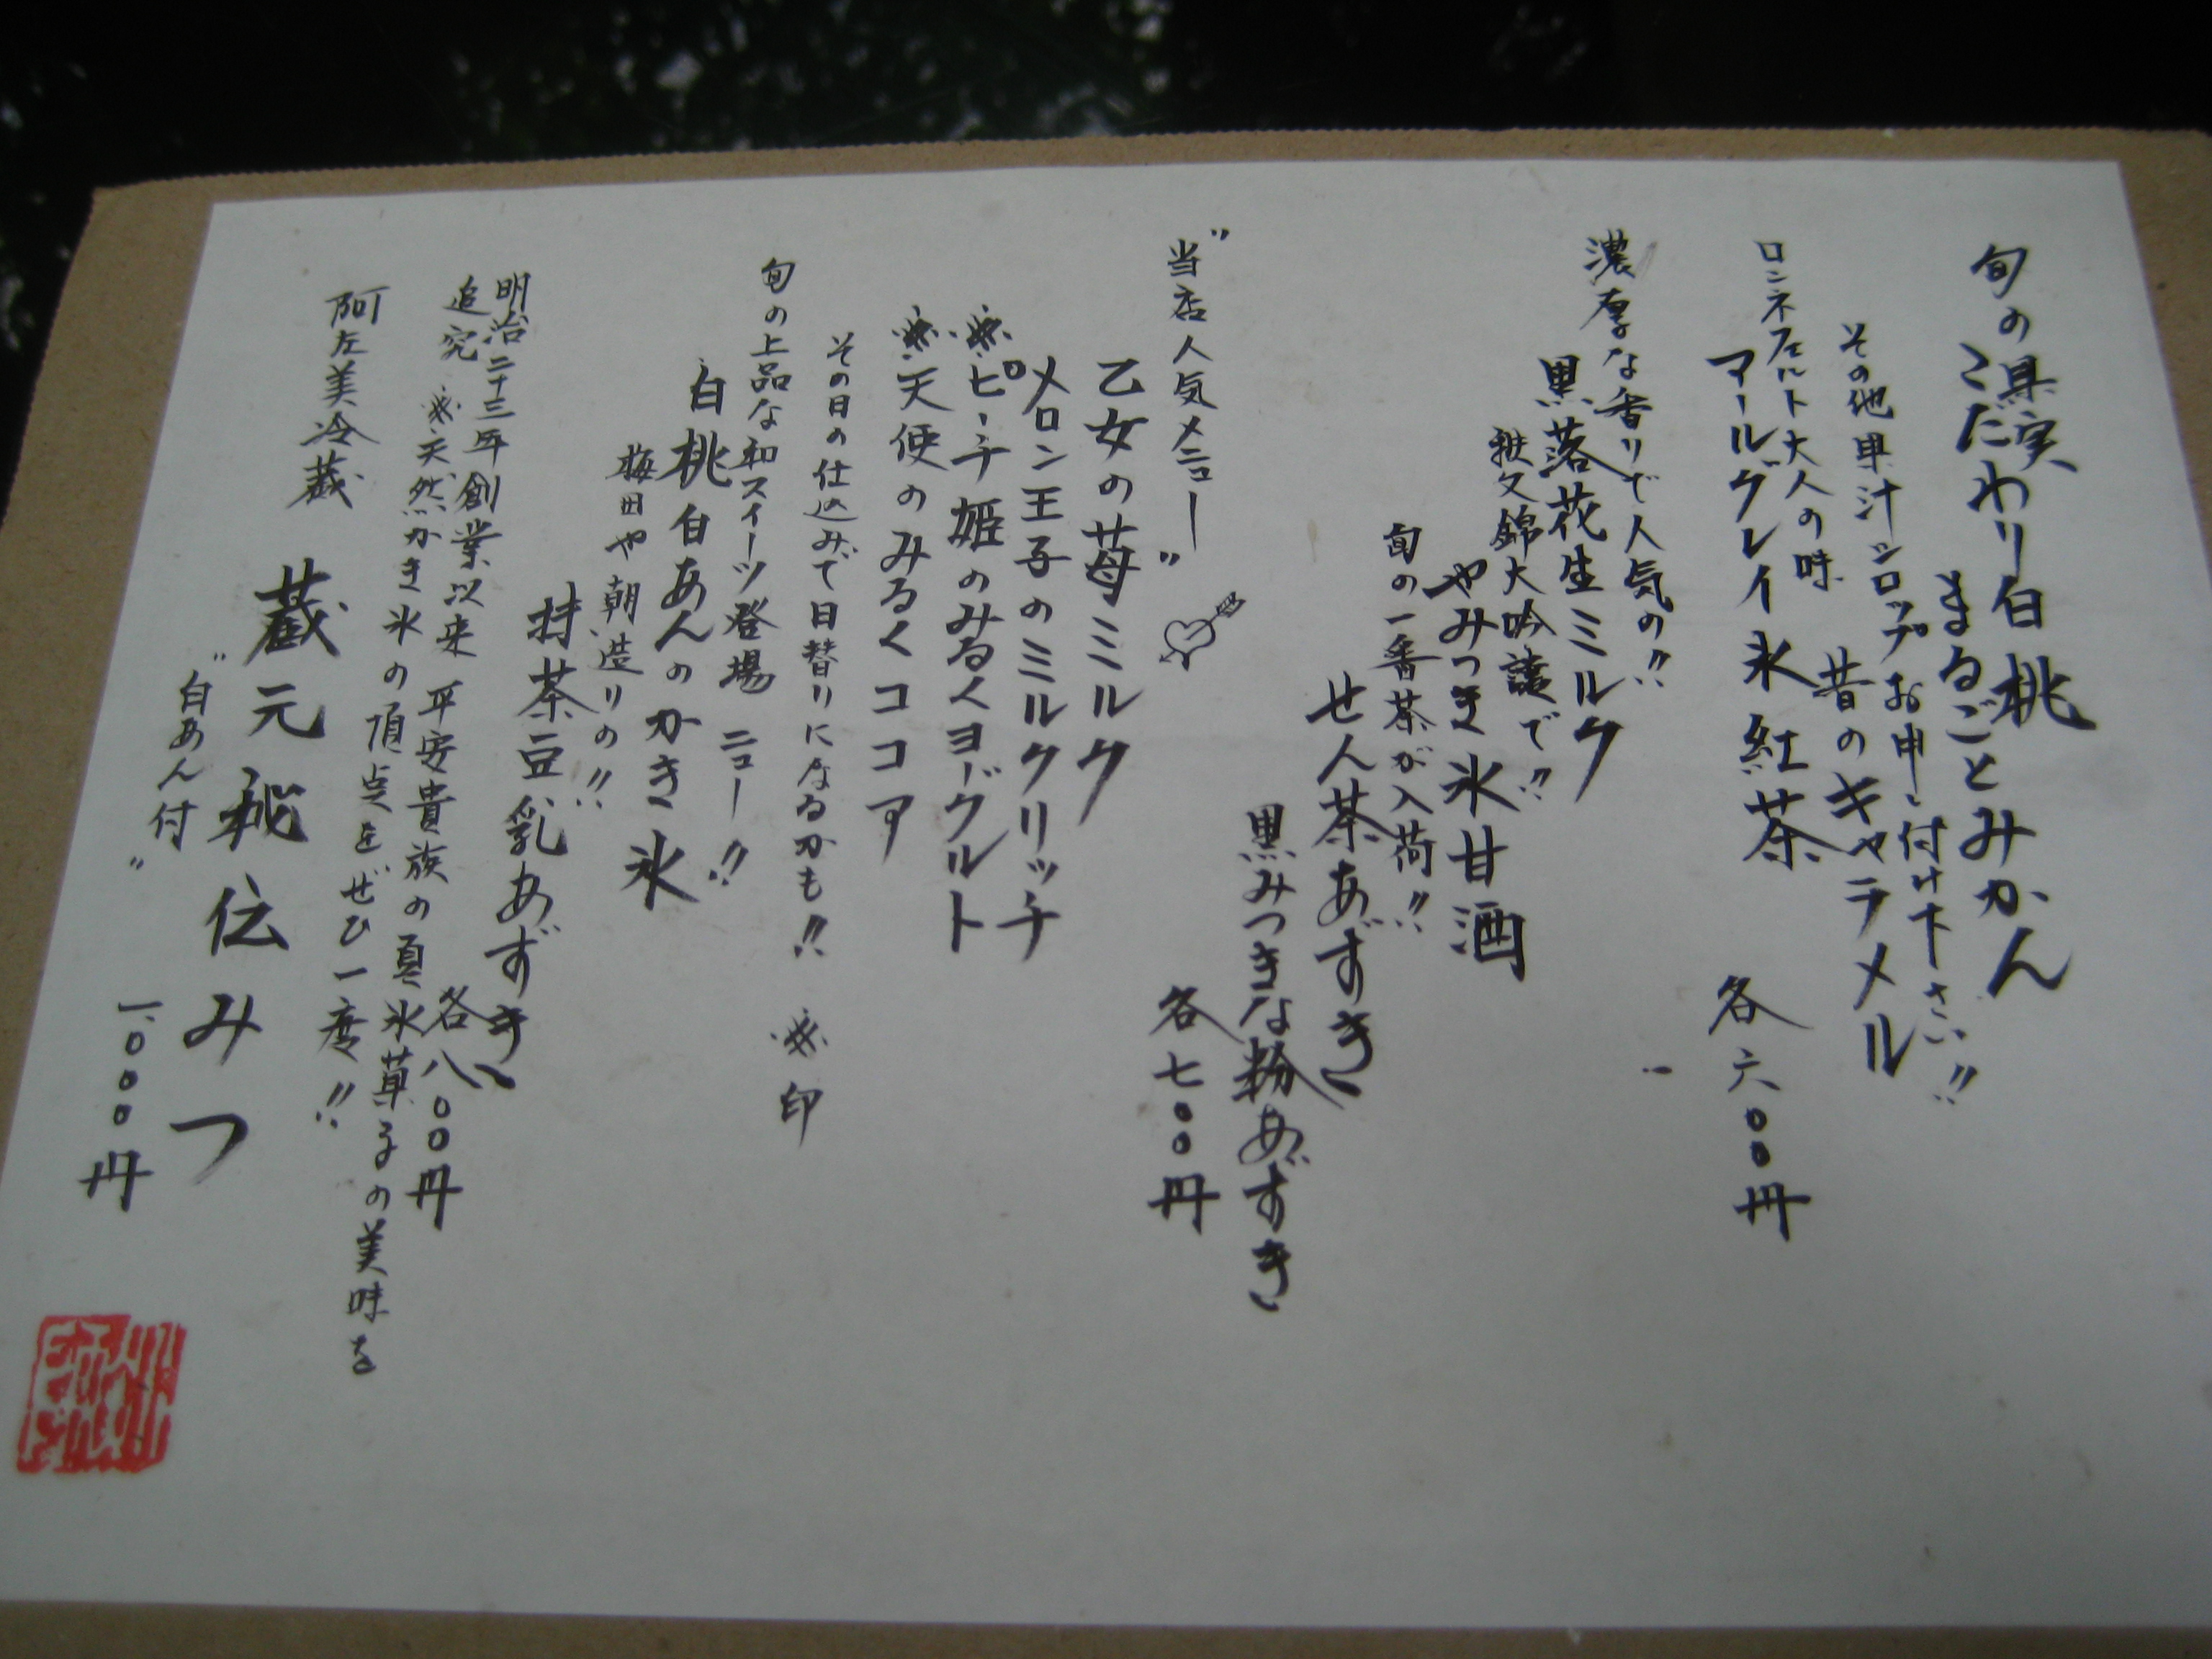 旬の果実
こだわり白桃
まるごとみかん
その他果汁シロップお申し付け下さい!!
昔のキャラメル
ロンネフェルト大人の味
アールグレイ氷紅茶
各六〇〇円
濃厚な香りで人気の!!
黒落花生ミルク
秩父錦大吟醸で!!
やみつき氷甘酒
旬の一番茶が入荷!!
せん茶あずき
黒みつきな粉あずき
各七〇〇円
"当店人気メニュー"
乙女の苺ミルク
メロン王子のミルクリッチ
※ピーチ姫のみるくヨーグルト
※天使のみるくココア
その日の仕込みで日替りになるかも!! ※印
旬の上品な和スイーツ登場 ニュー!!
白桃白あんのかき氷
梅田や朝造りの!!
抹茶豆乳あずき
各八〇〇円
明治二十三年創業以来 平安貴族の夏氷菓子の美味を
追究 ※天然かき氷の頂点をぜひ一度!!
阿左美冷蔵 蔵元秘伝みつ
"白あん付"
一、〇〇〇円